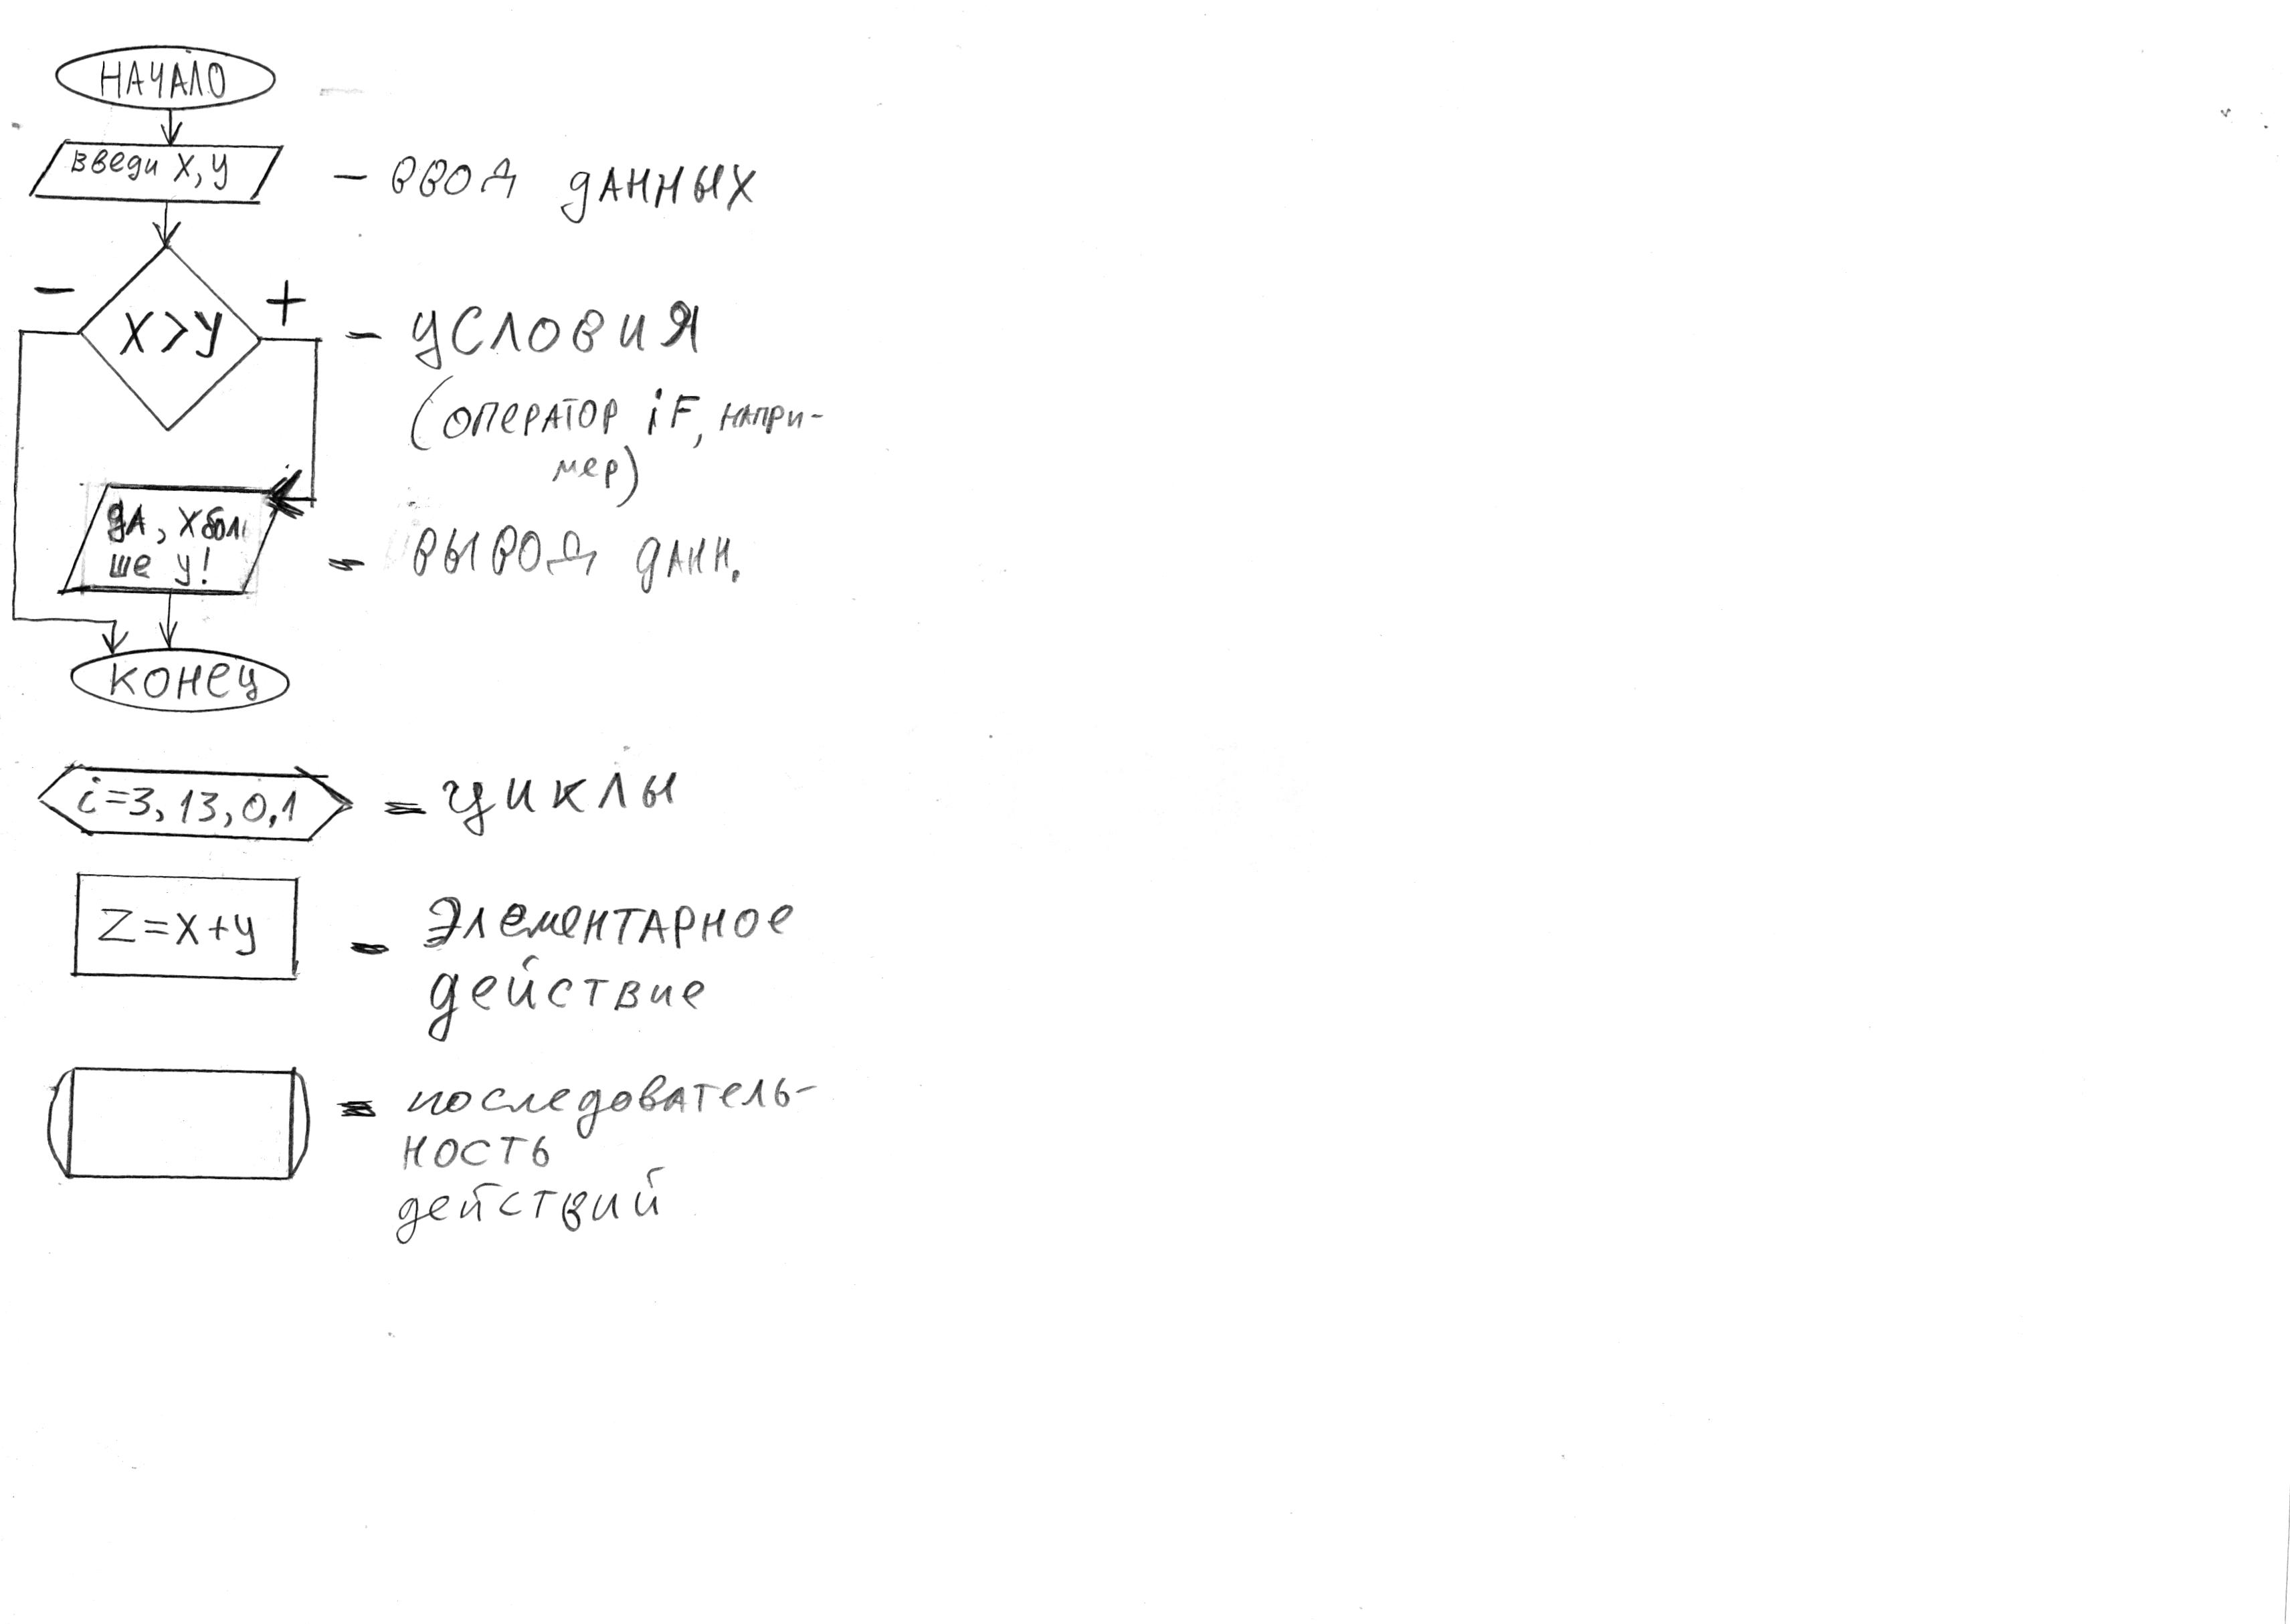 НАЧАЛО
введи X, У
- ввод дАННЫХ
-
+
X > У
- условия
(оператор iF, напри-
мер)
дА, X бол
ше у!
- вывод данн.
конец
i=3, 13, 0,1
= циклы
Z=X+У
- Элементарное
действие
= последователь-
ность
действий